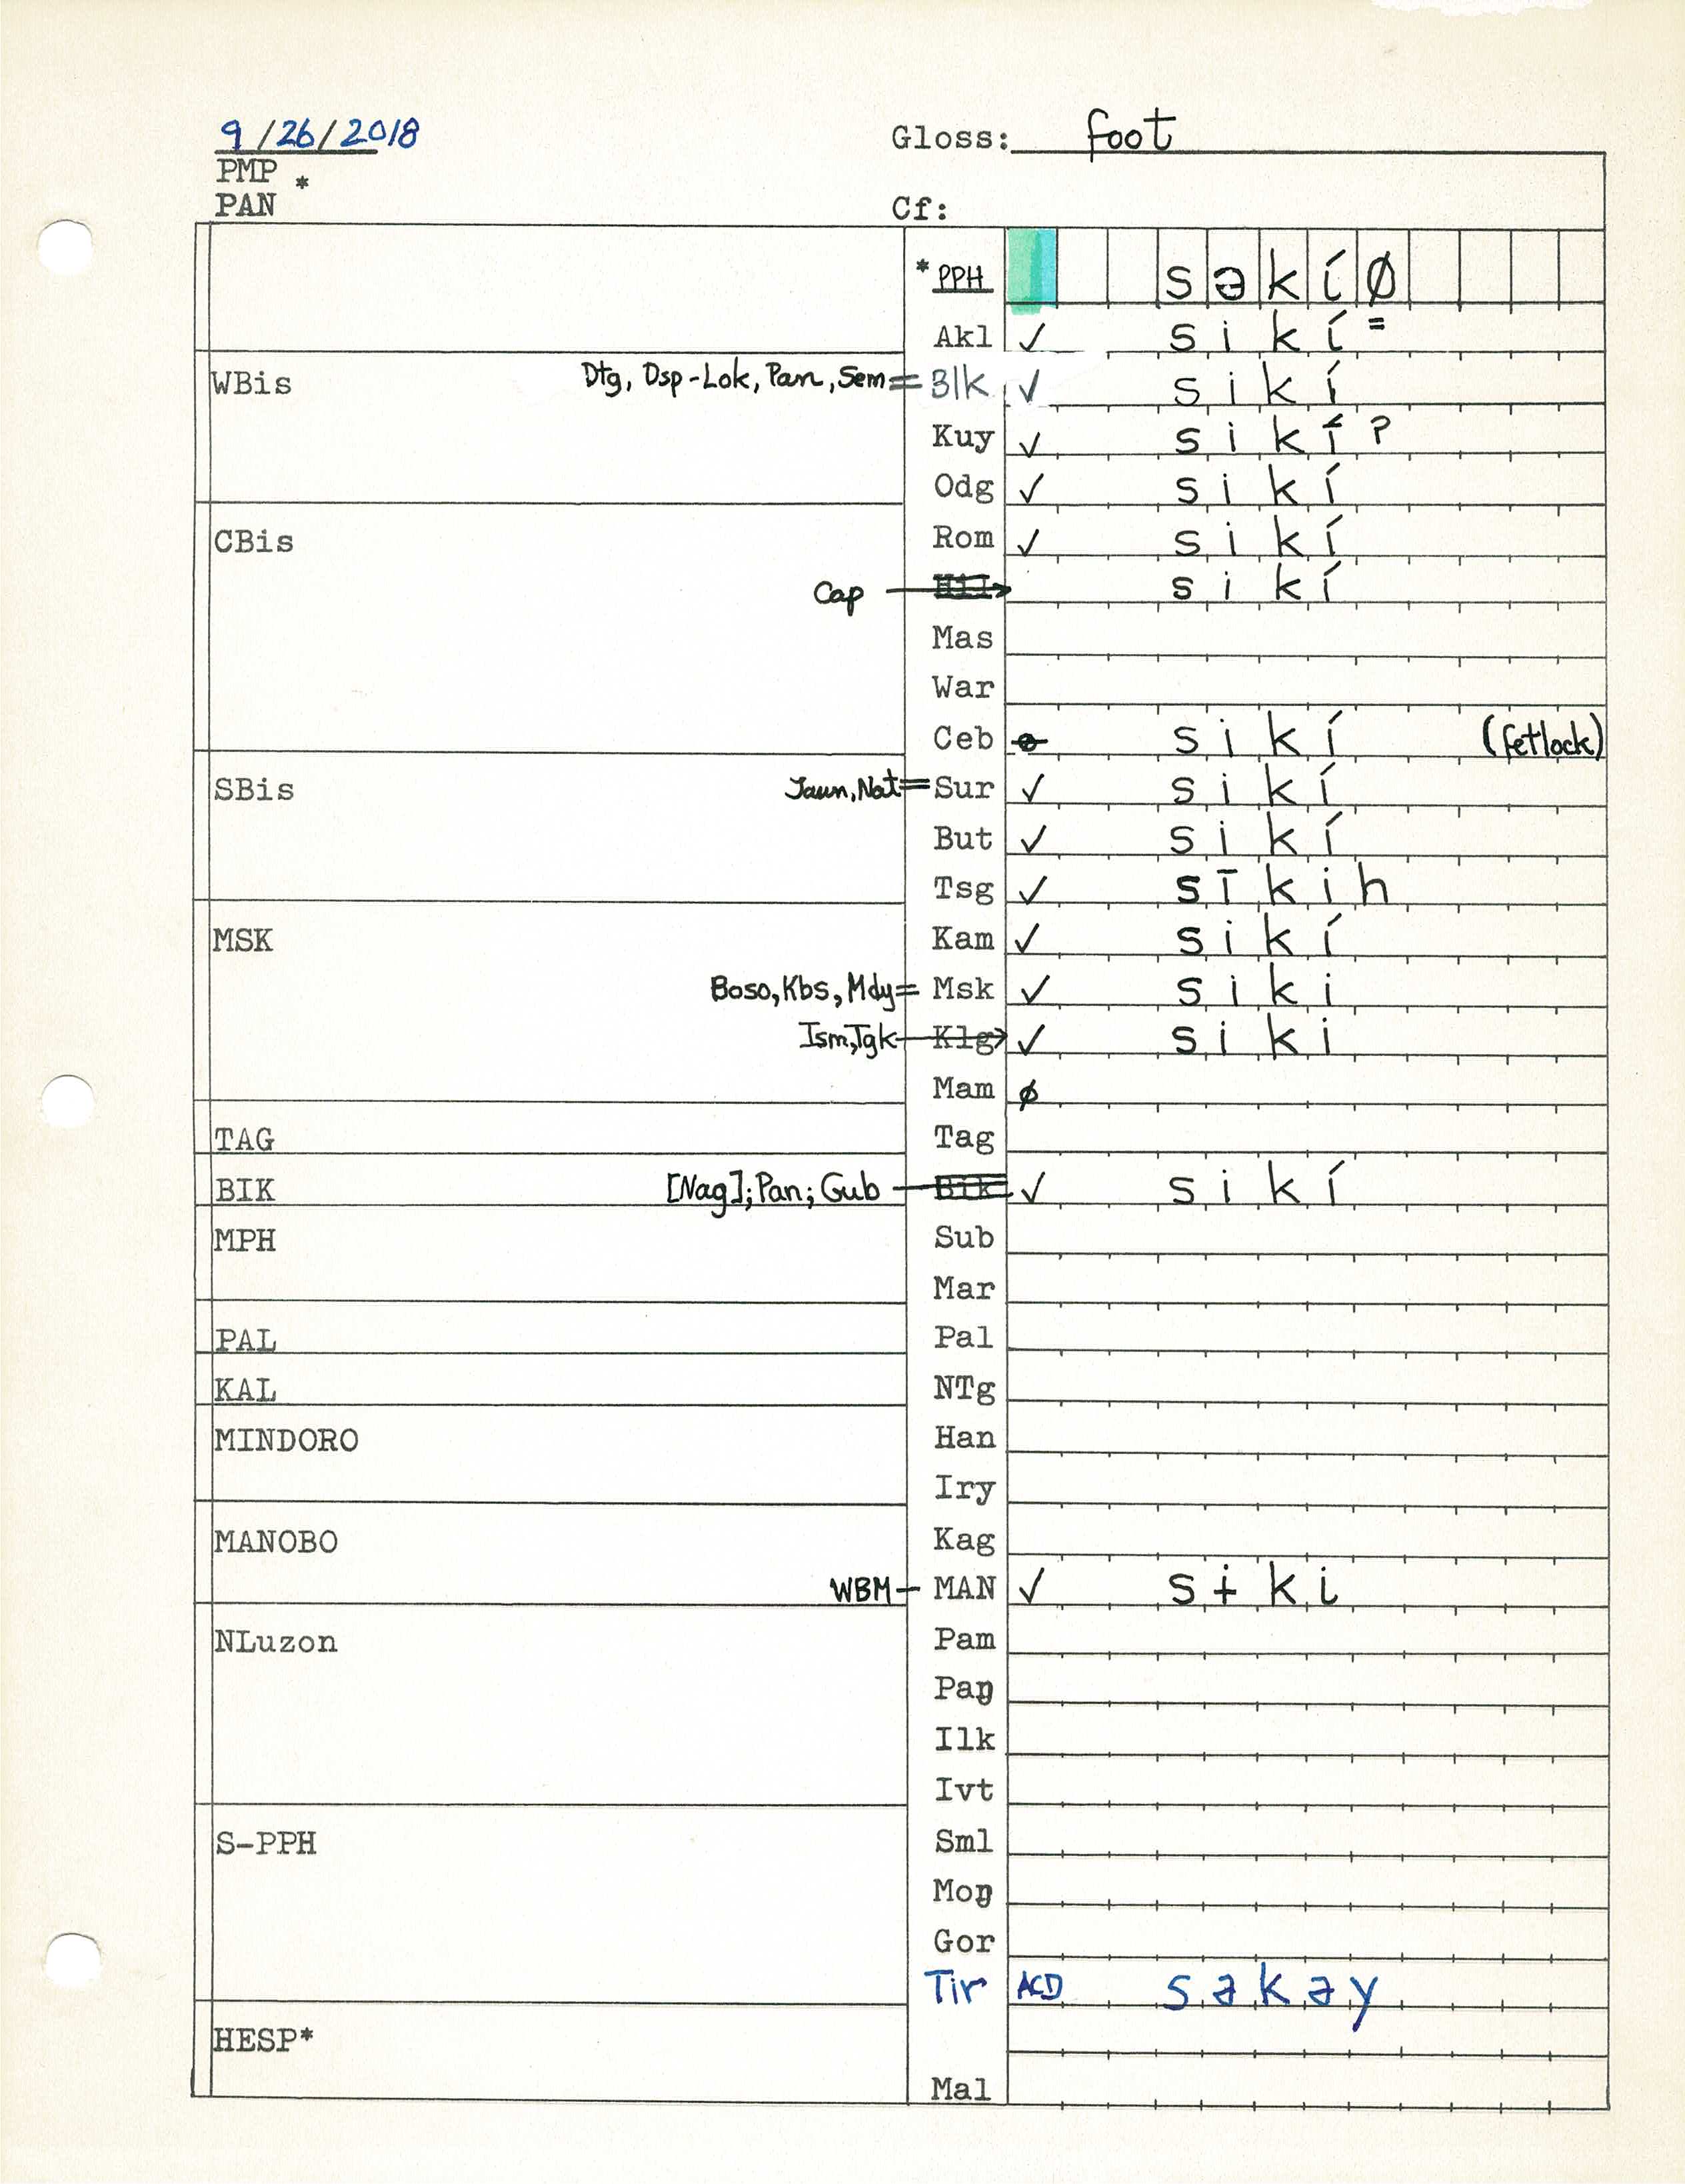 9/26/2018 Gloss: foot
PMP *
PAN Cf:
*PPH s ə k í Ø
Akl ✓ s i k í =
WBis Dtg, Dsp-Lok, Pan, Sem = Blk ✓ s i k í
Kuy ✓ s i k í ?
Odg ✓ s i k í
CBis Rom ✓ s i k í
Cap → s i k í
Mas
War
Ceb s i k í (fetlock)
SBis Jaun, Nat = Sur ✓ s i k í
But ✓ s i k í
Tsg ✓ s ī k i h
MSK Kam ✓ s i k í
Boso, Kbs, Mdy = Msk ✓ s i k i
Ism, Tgk → Klg ✓ s i k i
Mam ø
TAG Tag
BIK [Nag]; Pan; Gub — Bik ✓ s i k í
MPH Sub
Mar
PAL Pal
KAL NTg
MINDORO Han
Iry
MANOBO Kag
WBM – MAN ✓ s ɨ k i
NLuzon Pam
Paŋ
Ilk
Ivt
S-PPH Sml
Moŋ
Gor
Tir ACD s ə k ə y
HESP*
Mal